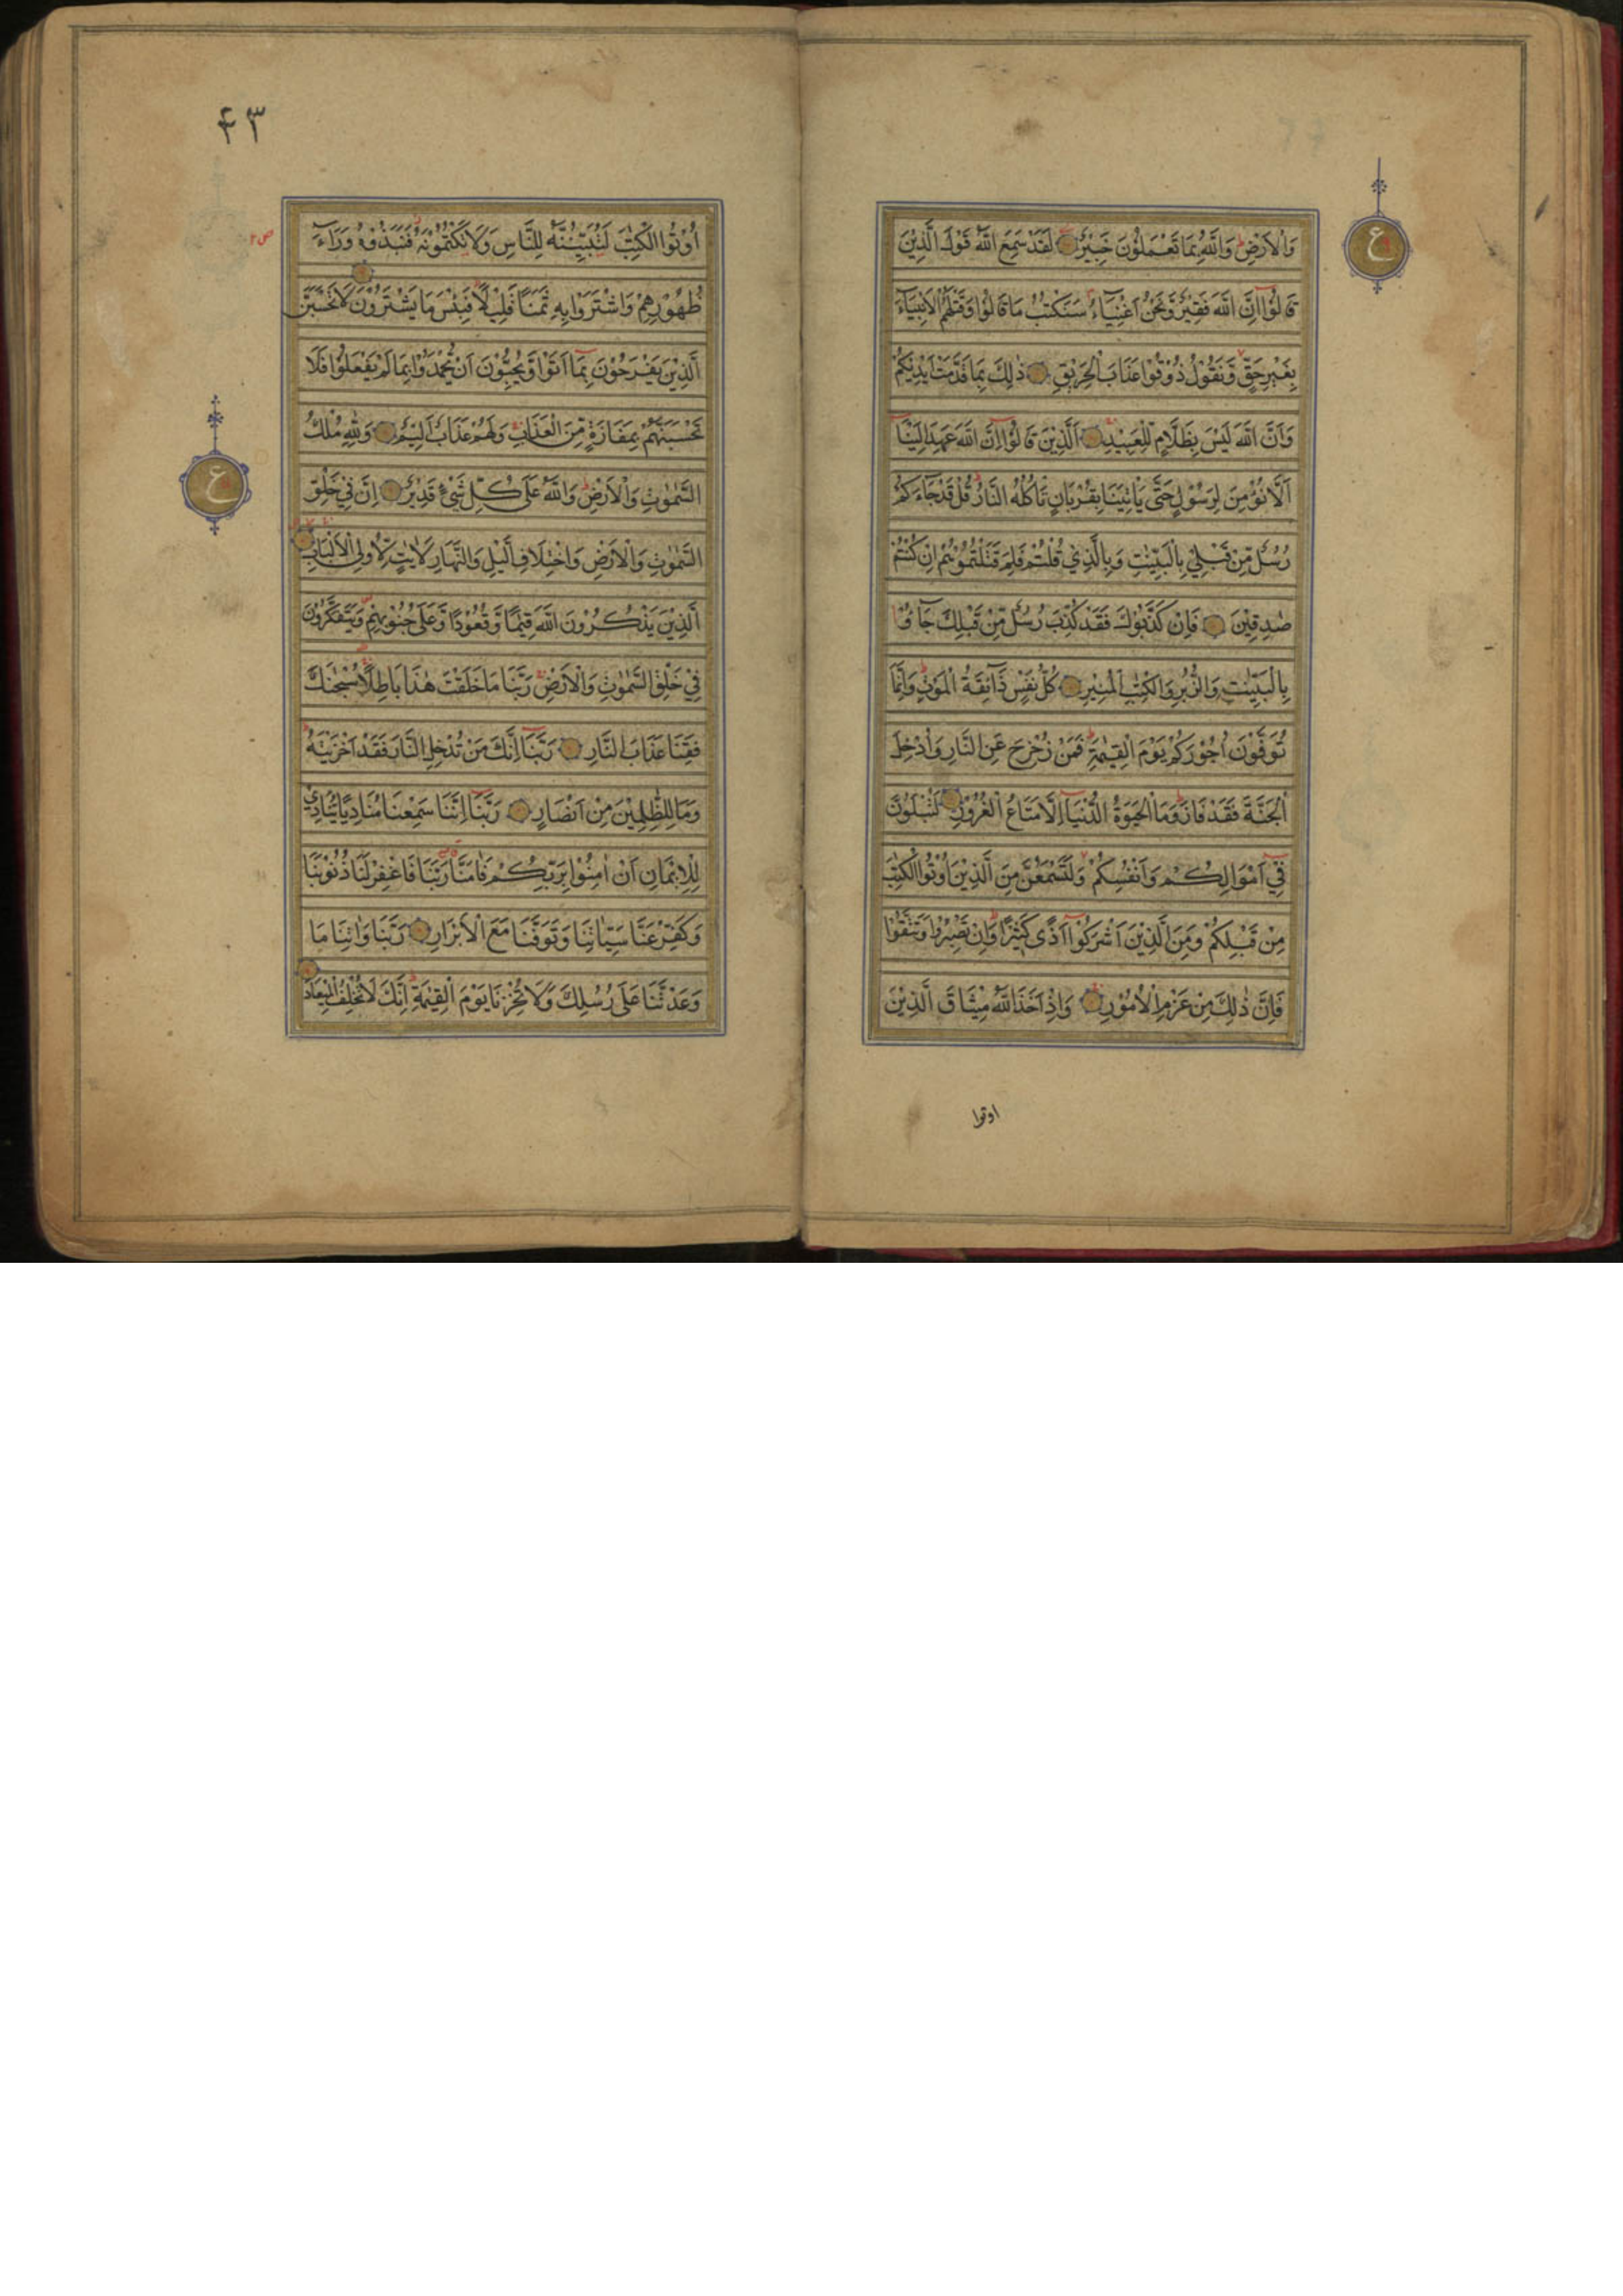 وَالْاَرْضِ وَاللّٰهُ بِمَا تَعْمَلُوْنَ خَبِيْرٌ لَقَدْ سَمِعَ اللّٰهُ قَوْلَ الَّذِيْنَ
قَالُوْا اِنَّ اللّٰهَ فَقِيْرٌ وَّنَحْنُ اَغْنِيَاءُ سَنَكْتُبُ مَا قَالُوْا وَقَتْلَهُمُ الْاَنْبِيَاءَ
بِغَيْرِ حَقٍّ وَّنَقُوْلُ ذُوْقُوْا عَذَابَ الْحَرِيْقِ ذٰلِكَ بِمَا قَدَّمَتْ اَيْدِيْكُمْ
وَاَنَّ اللّٰهَ لَيْسَ بِظَلَّامٍ لِّلْعَبِيْدِ اَلَّذِيْنَ قَالُوْا اِنَّ اللّٰهَ عَهِدَ اِلَيْنَا
اَلَّا نُؤْمِنَ لِرَسُوْلٍ حَتّٰى يَاْتِيَنَا بِقُرْبَانٍ تَاْكُلُهُ النَّارُ قُلْ قَدْ جَاءَكُمْ
رُسُلٌ مِّنْ قَبْلِيْ بِالْبَيِّنٰتِ وَبِالَّذِيْ قُلْتُمْ فَلِمَ قَتَلْتُمُوْهُمْ اِنْ كُنْتُمْ
صٰدِقِيْنَ فَاِنْ كَذَّبُوْكَ فَقَدْ كُذِّبَ رُسُلٌ مِّنْ قَبْلِكَ جَاءُوْا
بِالْبَيِّنٰتِ وَالزُّبُرِ وَالْكِتٰبِ الْمُنِيْرِ كُلُّ نَفْسٍ ذَائِقَةُ الْمَوْتِ وَاِنَّمَا
تُوَفَّوْنَ اُجُوْرَكُمْ يَوْمَ الْقِيٰمَةِ فَمَنْ زُحْزِحَ عَنِ النَّارِ وَاُدْخِلَ
الْجَنَّةَ فَقَدْ فَازَ وَمَا الْحَيٰوةُ الدُّنْيَا اِلَّا مَتَاعُ الْغُرُوْرِ لَتُبْلَوُنَّ
فِيْ اَمْوَالِكُمْ وَاَنْفُسِكُمْ وَلَتَسْمَعُنَّ مِنَ الَّذِيْنَ اُوْتُوا الْكِتٰبَ
مِنْ قَبْلِكُمْ وَمِنَ الَّذِيْنَ اَشْرَكُوْا اَذًى كَثِيْرًا وَاِنْ تَصْبِرُوْا وَتَتَّقُوْا
فَاِنَّ ذٰلِكَ مِنْ عَزْمِ الْاُمُوْرِ وَاِذْ اَخَذَ اللّٰهُ مِيْثَاقَ الَّذِيْنَ
اوتوا
ع
٤٣
اُوْتُوا الْكِتٰبَ لَتُبَيِّنُنَّهٗ لِلنَّاسِ وَلَا تَكْتُمُوْنَهٗ فَنَبَذُوْهُ وَرَاءَ
ظُهُوْرِهِمْ وَاشْتَرَوْا بِهٖ ثَمَنًا قَلِيْلًا فَبِئْسَ مَا يَشْتَرُوْنَ لَا تَحْسَبَنَّ
الَّذِيْنَ يَفْرَحُوْنَ بِمَا اَتَوْا وَّيُحِبُّوْنَ اَنْ يُّحْمَدُوْا بِمَا لَمْ يَفْعَلُوْا فَلَا
تَحْسَبَنَّهُمْ بِمَفَازَةٍ مِّنَ الْعَذَابِ وَلَهُمْ عَذَابٌ اَلِيْمٌ وَلِلّٰهِ مُلْكُ
السَّمٰوٰتِ وَالْاَرْضِ وَاللّٰهُ عَلٰى كُلِّ شَيْءٍ قَدِيْرٌ اِنَّ فِيْ خَلْقِ
السَّمٰوٰتِ وَالْاَرْضِ وَاخْتِلَافِ الَّيْلِ وَالنَّهَارِ لَاٰيٰتٍ لِّاُولِى الْاَلْبَابِ
الَّذِيْنَ يَذْكُرُوْنَ اللّٰهَ قِيٰمًا وَّقُعُوْدًا وَّعَلٰى جُنُوْبِهِمْ وَيَتَفَكَّرُوْنَ
فِيْ خَلْقِ السَّمٰوٰتِ وَالْاَرْضِ رَبَّنَا مَا خَلَقْتَ هٰذَا بَاطِلًا سُبْحٰنَكَ
فَقِنَا عَذَابَ النَّارِ رَبَّنَا اِنَّكَ مَنْ تُدْخِلِ النَّارَ فَقَدْ اَخْزَيْتَهٗ
وَمَا لِلظّٰلِمِيْنَ مِنْ اَنْصَارٍ رَبَّنَا اِنَّنَا سَمِعْنَا مُنَادِيًا يُّنَادِيْ
لِلْاِيْمَانِ اَنْ اٰمِنُوْا بِرَبِّكُمْ فَاٰمَنَّا رَبَّنَا فَاغْفِرْ لَنَا ذُنُوْبَنَا
وَكَفِّرْ عَنَّا سَيِّاٰتِنَا وَتَوَفَّنَا مَعَ الْاَبْرَارِ رَبَّنَا وَاٰتِنَا مَا
وَعَدْتَّنَا عَلٰى رُسُلِكَ وَلَا تُخْزِنَا يَوْمَ الْقِيٰمَةِ اِنَّكَ لَا تُخْلِفُ الْمِيْعَادَ
ع